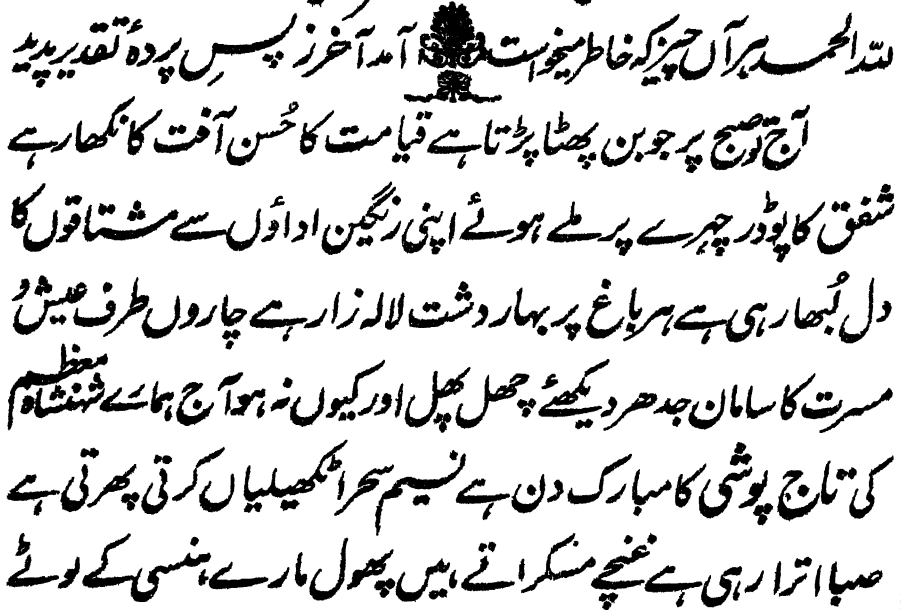 للہ الحمد ہر آں چیز کہ خاطر میخواست آمد آخر ز پسِ پردۂ تقدیر پدید
آج تو صبح پر جوبن پھٹا پڑتا ہے قیامت کا حُسن آفت کا نکھار ہے
شفق کا پوڈر چہرے پر ملے ہوئے اپنی رنگین اداؤں سے مشتاقوں کا
دل لُبھا رہی ہے ہر باغ پر بہار دشت لالہ زار ہے چاروں طرف عیش و
مسرت کا سامان جدھر دیکھئے چھل پھل اور کیوں نہ ہو آج ہمارے شہنشاہ معظم
کی تاج پوشی کا مبارک دن ہے نسیم سحر اٹکھیلیاں کرتی پھرتی ہے
صبا اترا رہی ہے غنچے مسکراتے ہیں پھول مارے ہنسی کے لوٹے